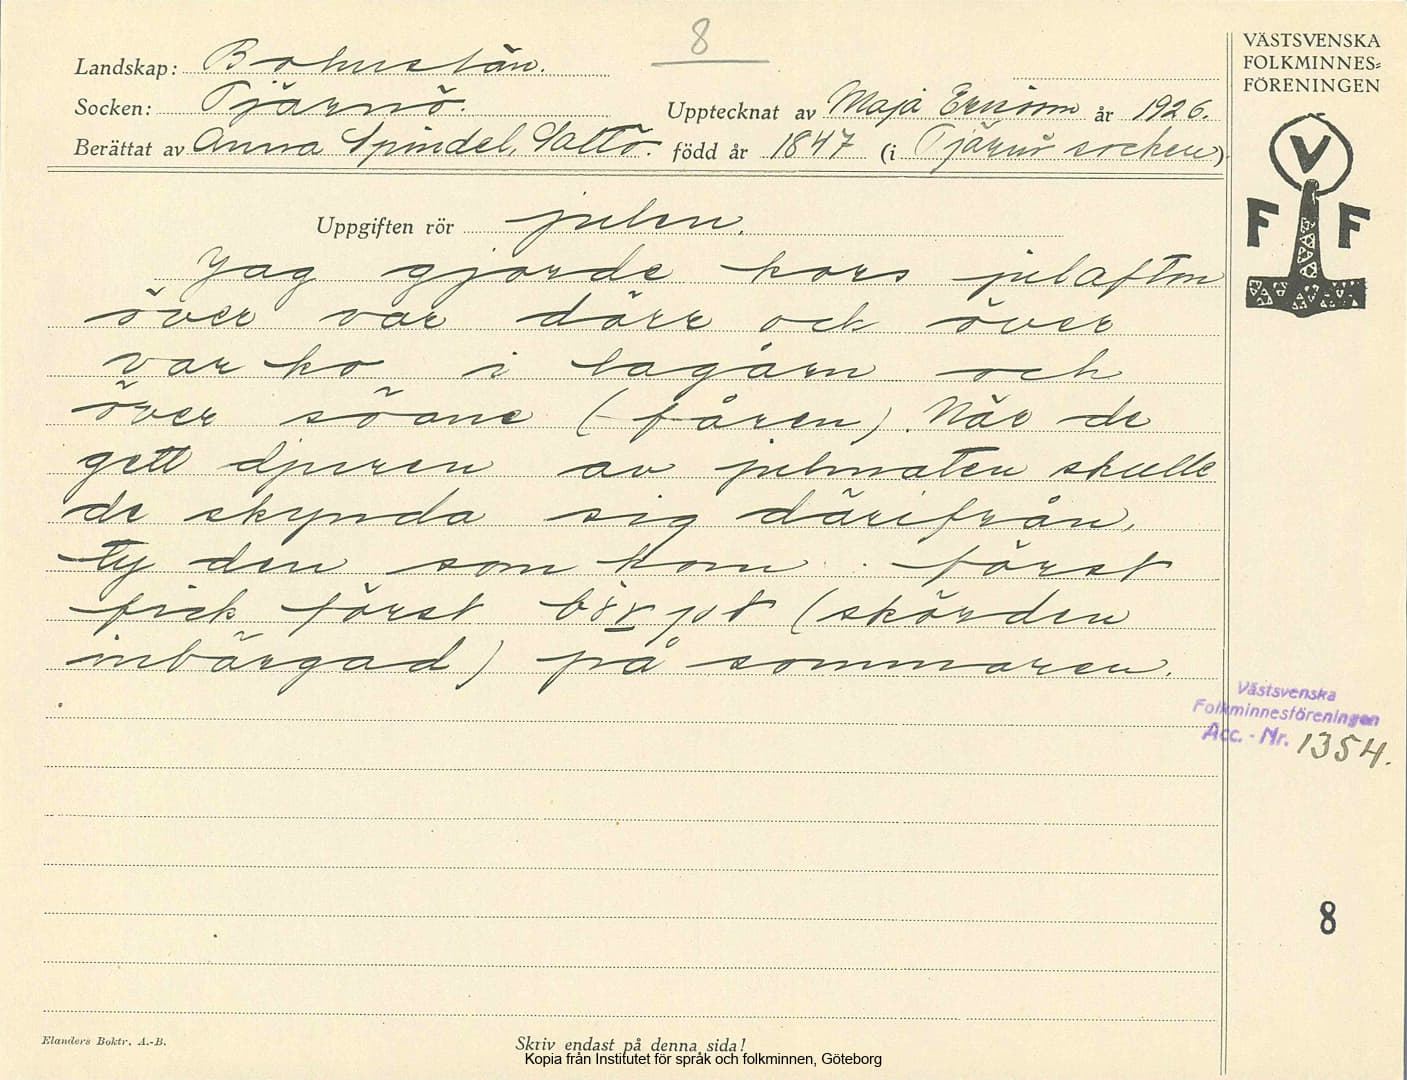 8
Landskap: Bohuslän.
Socken: Tjärnö.
Upptecknat av Maja Ericson år 1926.
Berättat av Anna Spindel, Saltö. född år 1847 (i Tjärnö socken)
VÄSTSVENSKA
FOLKMINNES=
FÖRENINGEN
V
F F
Uppgiften rör julen.
Jag gjorde kors julafton
över var dörr och över
var ko i lagårn och
över söane (fåren). När de
gett djuren av julmaten skulle
de skynda sig därifrån,
ty den som kom först
fick först (skörden
inbärgad) på sommaren.
Västsvenska
Folkminnesföreningen
Acc. - Nr. 1354.
8
Elanders Boktr. A.-B.
Skriv endast på denna sida!
Kopia från Institutet för språk och folkminnen, Göteborg